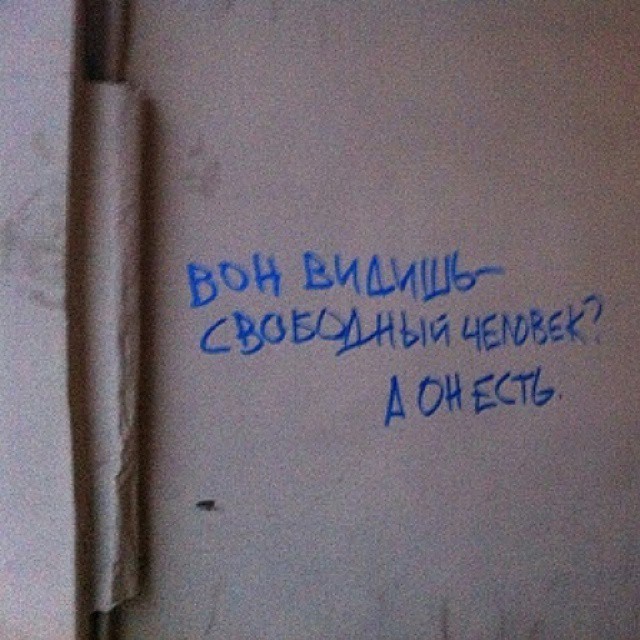 ВОН ВИДИШЬ–
СВОБОДНЫЙ ЧЕЛОВЕК?
А ОН ЕСТЬ.